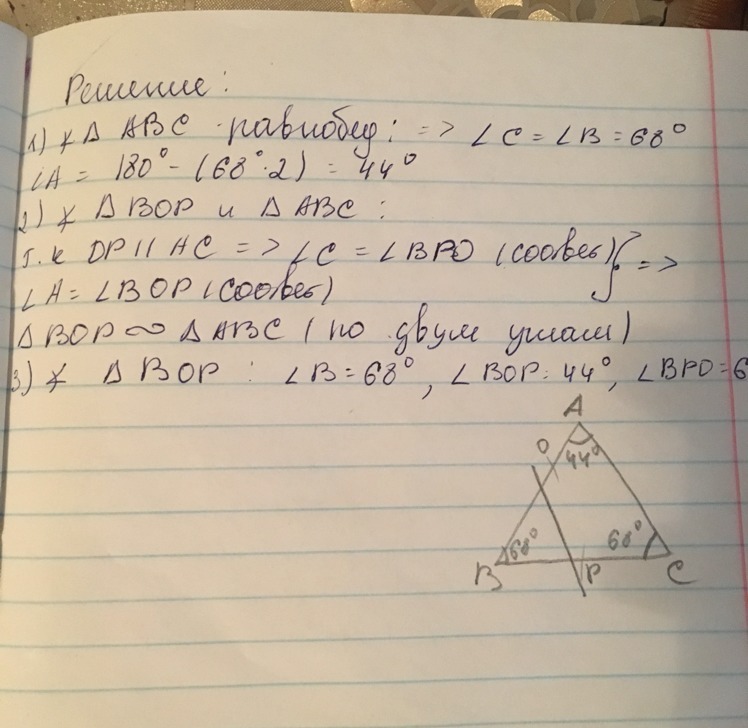 Решение:
1) ∡ Δ ABC - равнобед: => ∠C = ∠B = 68°
∠A = 180° - (68° · 2) = 44°
2) ∡ Δ BOP и Δ ABC :
т.к OP || AC => ∠C = ∠BPO (соотвес) } =>
∠A = ∠BOP (соотвес)
Δ BOP ∾ Δ ABC (по двум углам)
3) ∡ Δ BOP : ∠B = 68°, ∠BOP = 44°, ∠BPO = 6
A
O
44°
68°
68°
B
P
C